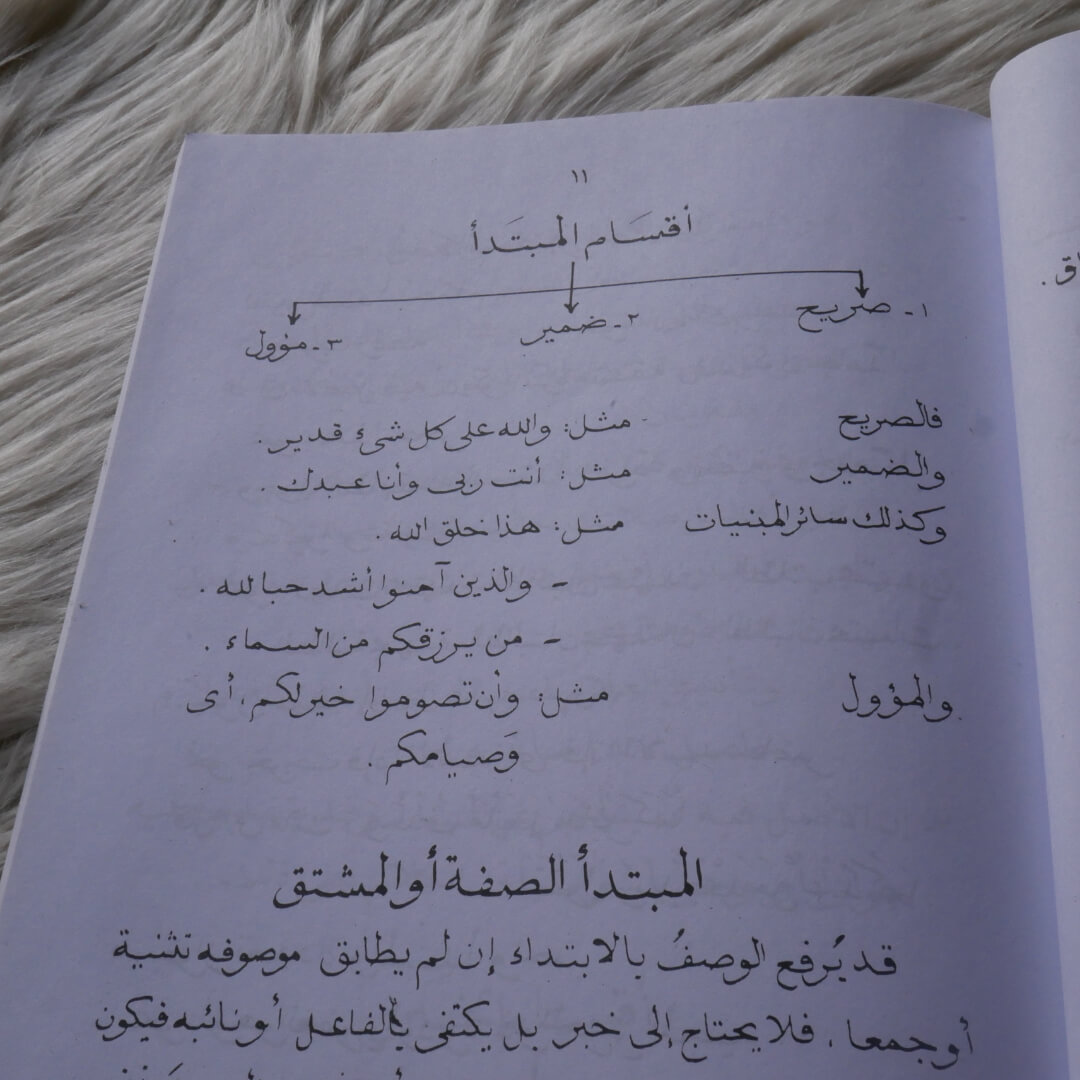 ١١
أقسَام المبتَدأ
١ـ صريح ٢ـ ضمير ٣ـ مؤول
فالصريح مثل: والله على كل شىء قدير.
والضمير مثل: أنت ربى وأنا عبدك.
وكذلك سائر المبنيات مثل: هذا خلق الله.
– والذين آمنوا أشد حبا لله.
– من يرزقكم من السماء.
والمؤول مثل: وأن تصوموا خير لكم، أى
وَصيامكم.
المبتدأ الصفة أو المشتق
قد يُرفع الوصفُ بالابتداء إن لم يطابق موصوفه تثنية
أو جمعا، فلا يحتاج إلى خبر بل يكتفى بالفاعل أو نائبه فيكون